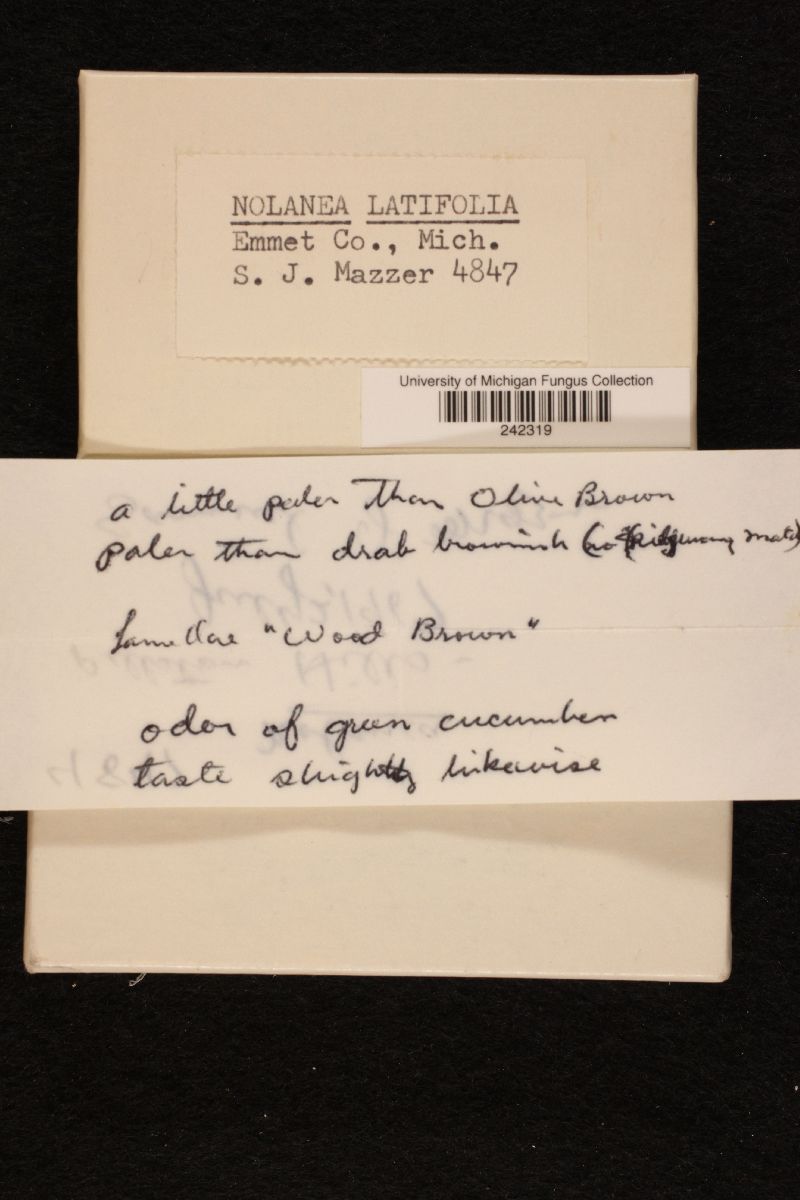 NOLANEA LATIFOLIA
Emmet Co., Mich.
S. J. Mazzer 4847
University of Michigan Fungus Collection
242319
a little paler than Olive Brown
paler than drab brownish (no Ridgway match)
Lamellae "Wood Brown"
odor of green cucumber
taste slightly likewise